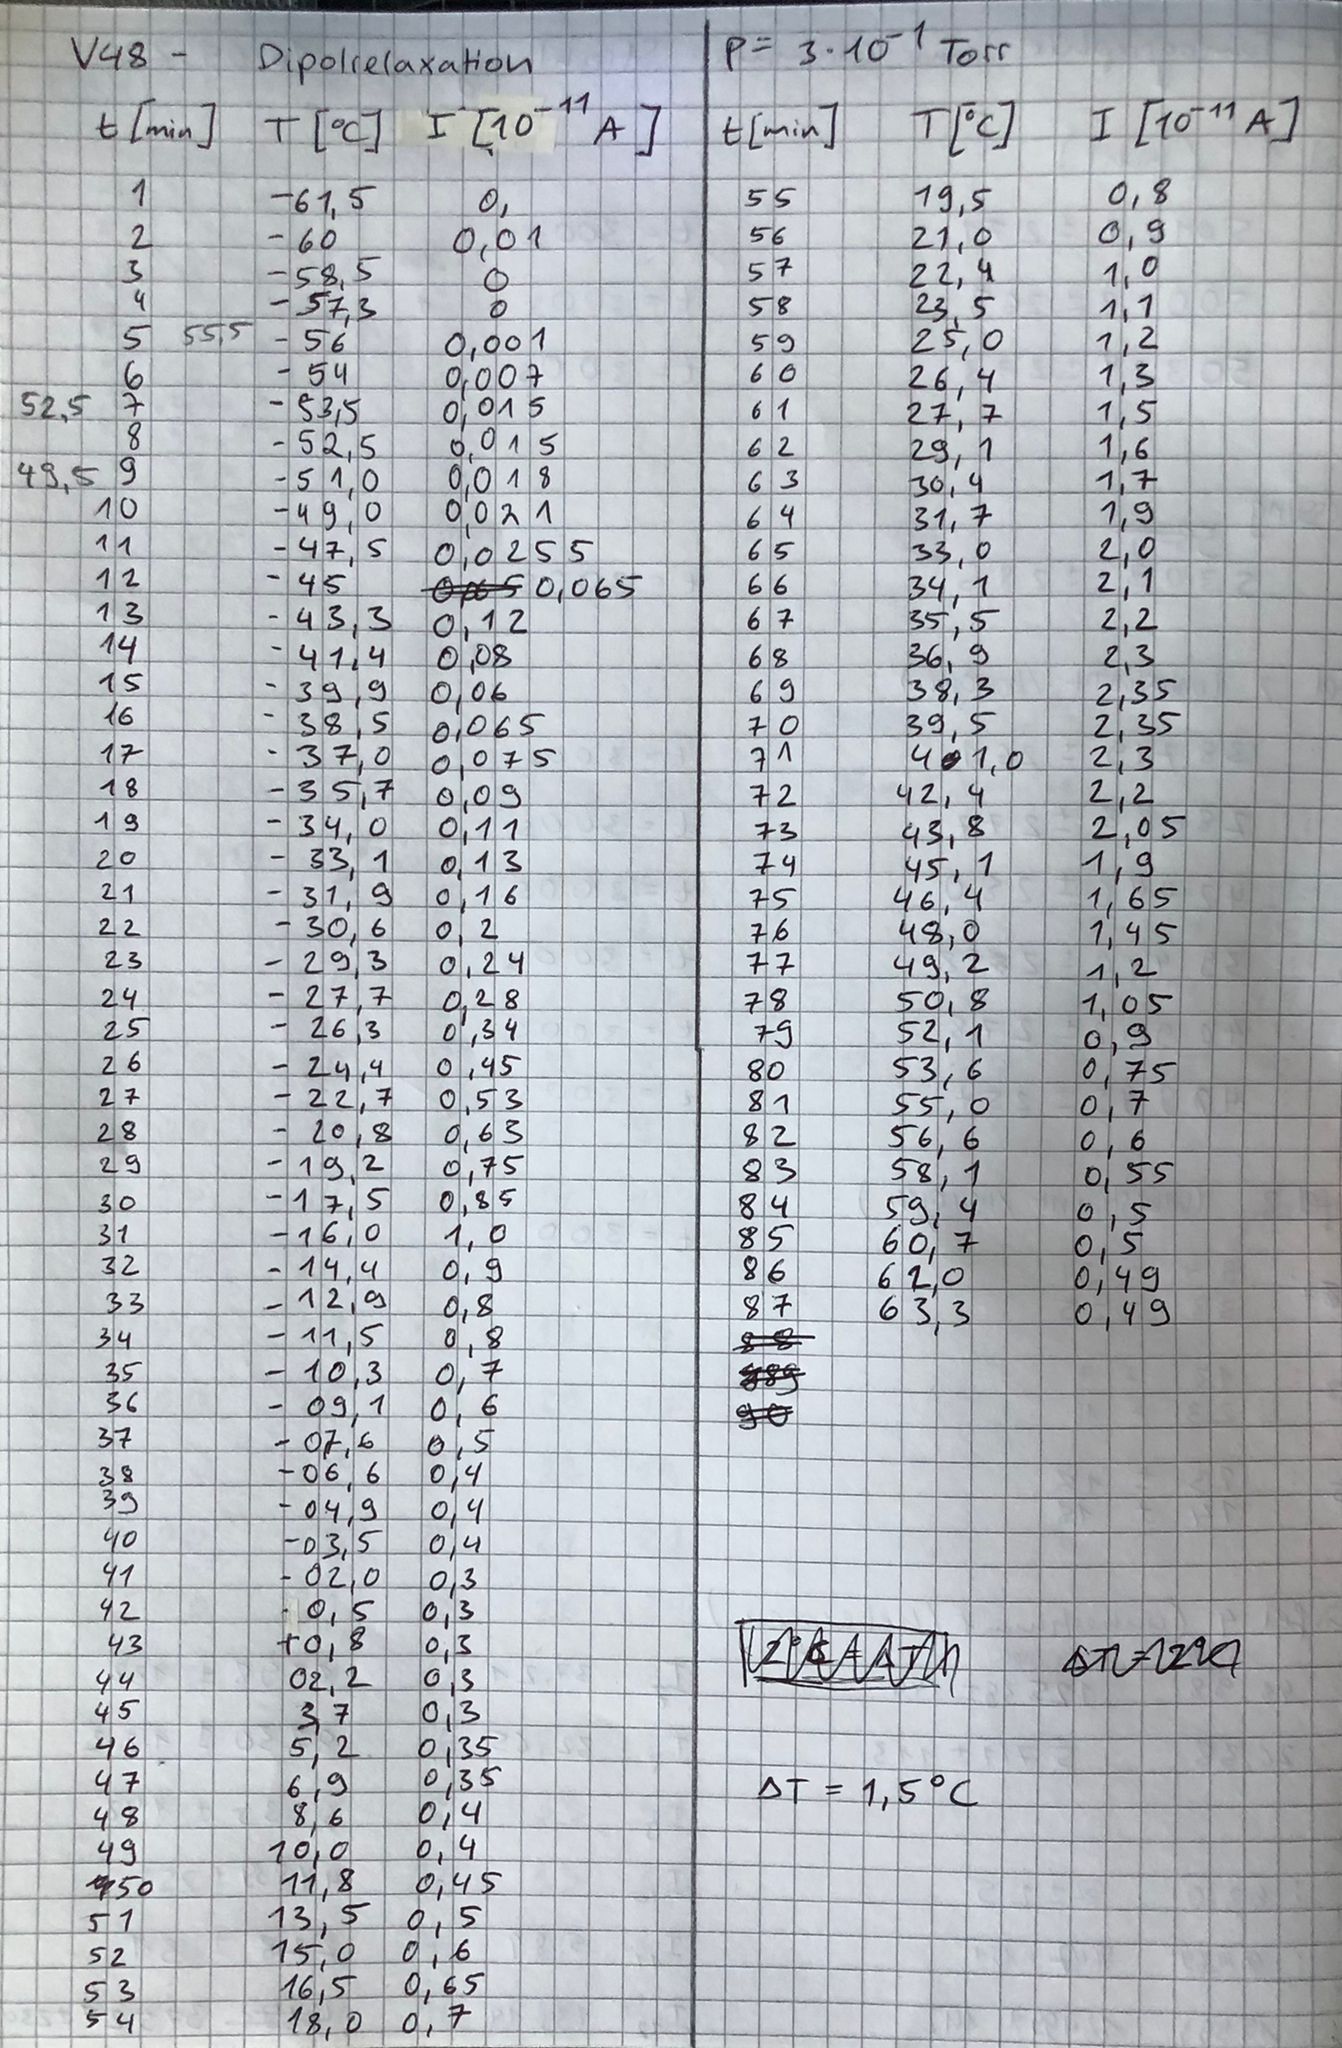 V48 - Dipolrelaxation
t [min] T [°C] I [10⁻¹¹ A]
1 -61,5 0,
2 -60 0,01
3 -58,5 0
4 -57,3 0
5 55,5 -56 0,001
6 -54 0,007
52,5 7 -53,5 0,015
8 -52,5 0,015
49,5 9 -51,0 0,018
10 -49,0 0,021
11 -47,5 0,0255
12 -45 0,065
13 -43,3 0,12
14 -41,4 0,08
15 -39,9 0,06
16 -38,5 0,065
17 -37,0 0,075
18 -35,7 0,09
19 -34,0 0,11
20 -33,1 0,13
21 -31,9 0,16
22 -30,6 0,2
23 -29,3 0,24
24 -27,7 0,28
25 -26,3 0,34
26 -24,4 0,45
27 -22,7 0,53
28 -20,8 0,63
29 -19,2 0,75
30 -17,5 0,85
31 -16,0 1,0
32 -14,4 0,9
33 -12,9 0,8
34 -11,5 0,8
35 -10,3 0,7
36 -09,1 0,6
37 -07,6 0,5
38 -06,6 0,4
39 -04,9 0,4
40 -03,5 0,4
41 -02,0 0,3
42 -0,5 0,3
43 +0,8 0,3
44 02,2 0,3
45 3,7 0,3
46 5,2 0,35
47 6,9 0,35
48 8,6 0,4
49 10,0 0,4
50 11,8 0,45
51 13,5 0,5
52 15,0 0,6
53 16,5 0,65
54 18,0 0,7
p = 3·10⁻¹ Torr
t [min] T [°C] I [10⁻¹¹ A]
55 19,5 0,8
56 21,0 0,9
57 22,4 1,0
58 23,5 1,1
59 25,0 1,2
60 26,4 1,3
61 27,7 1,5
62 29,1 1,6
63 30,4 1,7
64 31,7 1,9
65 33,0 2,0
66 34,1 2,1
67 35,5 2,2
68 36,9 2,3
69 38,3 2,35
70 39,5 2,35
71 41,0 2,3
72 42,4 2,2
73 43,8 2,05
74 45,1 1,9
75 46,4 1,65
76 48,0 1,45
77 49,2 1,2
78 50,8 1,05
79 52,1 0,9
80 53,6 0,75
81 55,0 0,7
82 56,6 0,6
83 58,1 0,55
84 59,4 0,5
85 60,7 0,5
86 62,0 0,49
87 63,3 0,49
88
89
90
ΔT = 1,5°C